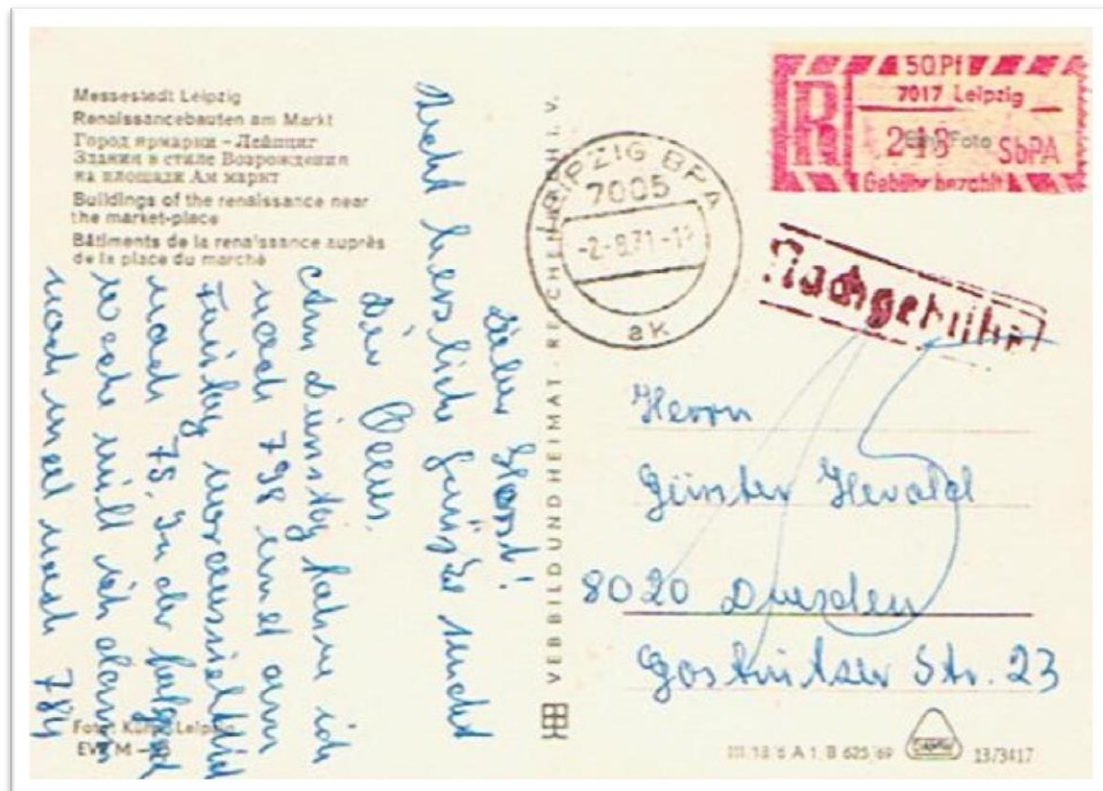 Messestadt Leipzig
Renaissancebauten am Markt
Город ярмарки – Лейпциг
Здания в стиле Возрождения
на площади Ам маркт
Buildings of the renaissance near
the market-place
Bâtiments de la renaissance auprès
de la place du marché
Recht herzliche Grüße sendet
Dir
Am Dienstag fahre ich
nach 798 und am
Freitag
nach 75. In der
Woche will ich dann
noch mal nach 784
VEB BILD UND HEIMAT · REICHENBACH I. V.
LEIPZIG BPA
7005
-2.-8.71.-1
ak
50 Pf
7017 Leipzig
R
218
SbPA
Gebühr bezahlt
Nachgebühr
15
Herrn
Günter
8020 Dresden
Str. 23
Foto: Leipzig
III/18/6 A 1 B 625/69
1373417